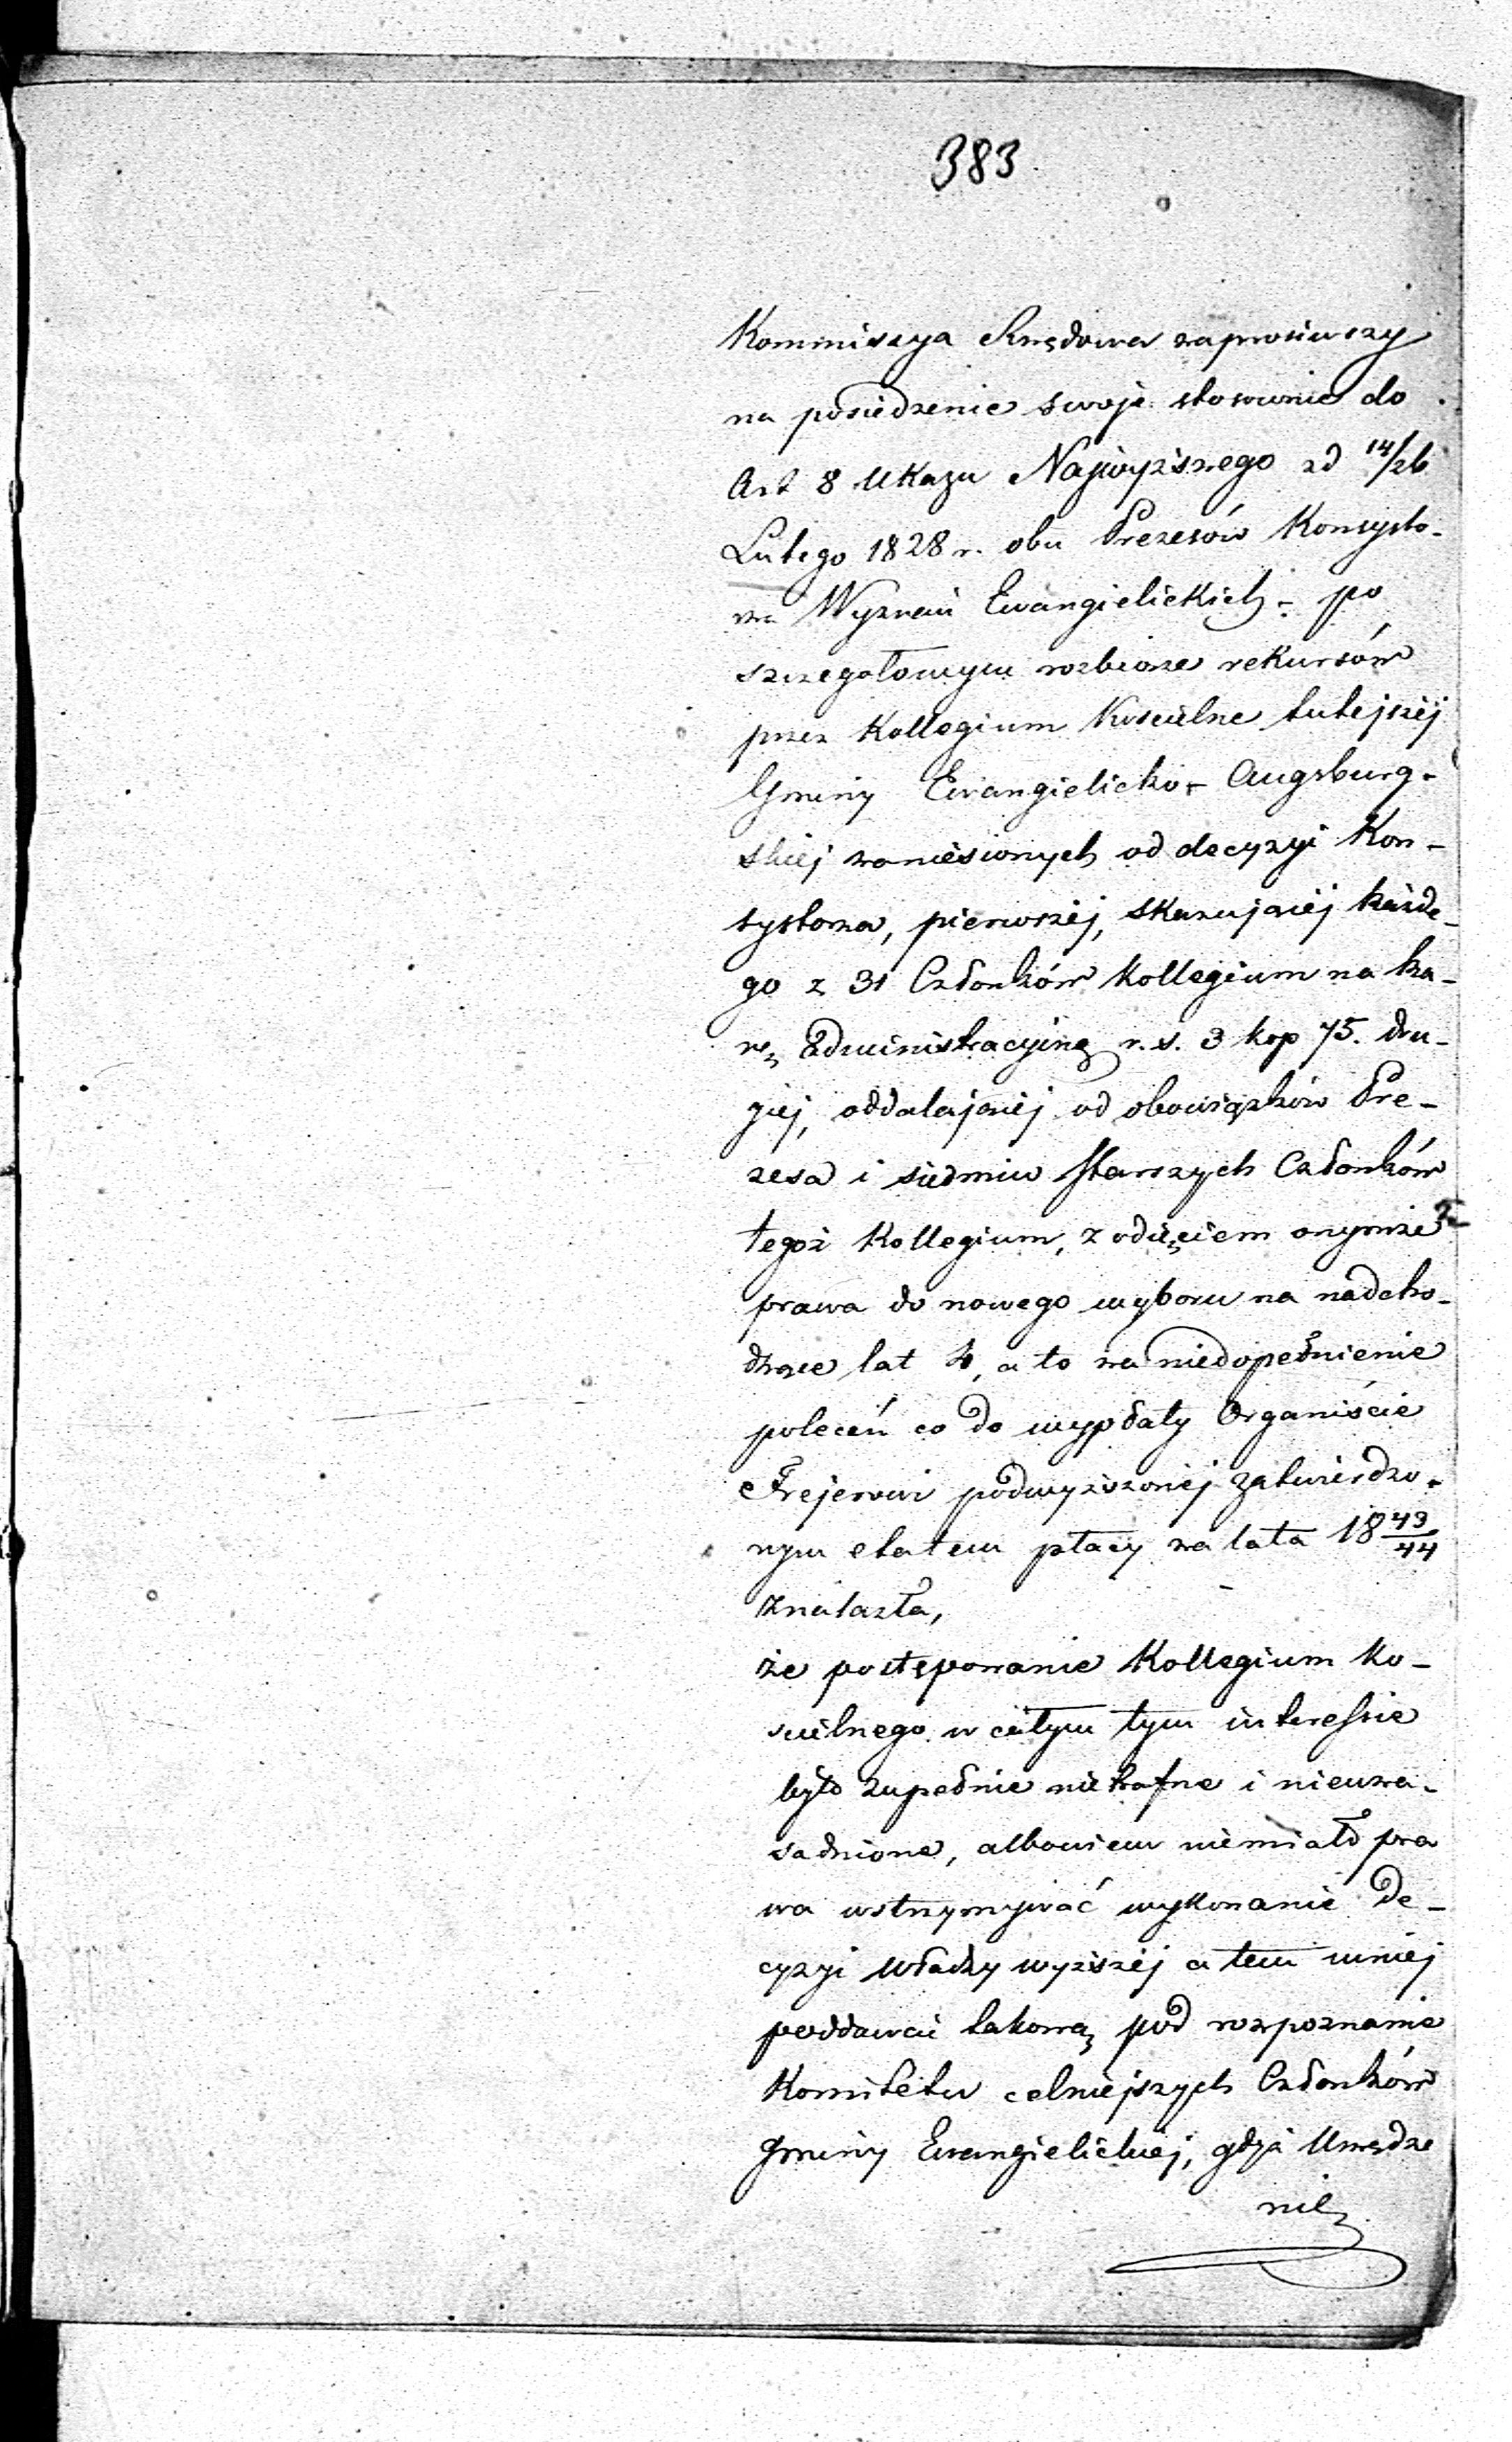 383
Kommissya Rządowa zaprosiwszy
na posiedzenie swoje stosownie do
Art 8 Ukazu Najwyższego zd 14/26
Lutego 1828 r. obu Prezesów Konsysto-
rza Wyznań Ewangielickich - po
szczegołowym rozbiorze rekursów
przez Kollegium Kościelne tutejszéj
Gminy Ewangielicko - Augsburg-
skiej zaniesionych od decyzyi Kon-
systorza, pierwszéj, skazującéj każde-
go z 31 Członków Kollegium na ka-
rę Administracyiną r. s. 3 kop 75. dru-
giej, oddalającéj od obowiązków Pre-
zesa i siedmiu Starszych Członków
tegoż Kollegium, z odięciem onymże
prawa do nowego wyboru na nadcho-
dzące lat 4, a to za niedopełnienie
poleceń co do wypłaty Organiście
Frejerowi podwyższonéj zatwierdzo-
nym etatem płacy na lata 18 43/44
Znalazła,
że postępowanie Kollegium Ko-
ścielnego w całym tym interessie
było zupełnie nietrafne i nieuza-
sadnione, albowiem niemiało pra
wa wstrzymywać wykonanie de-
cyzyi władzy wyższéj a tem mniej
poddawać takową pod rozpoznanie
Komitetu celniejszych Członków
Gminy Ewangielickiej, gdyż Urządze
nie